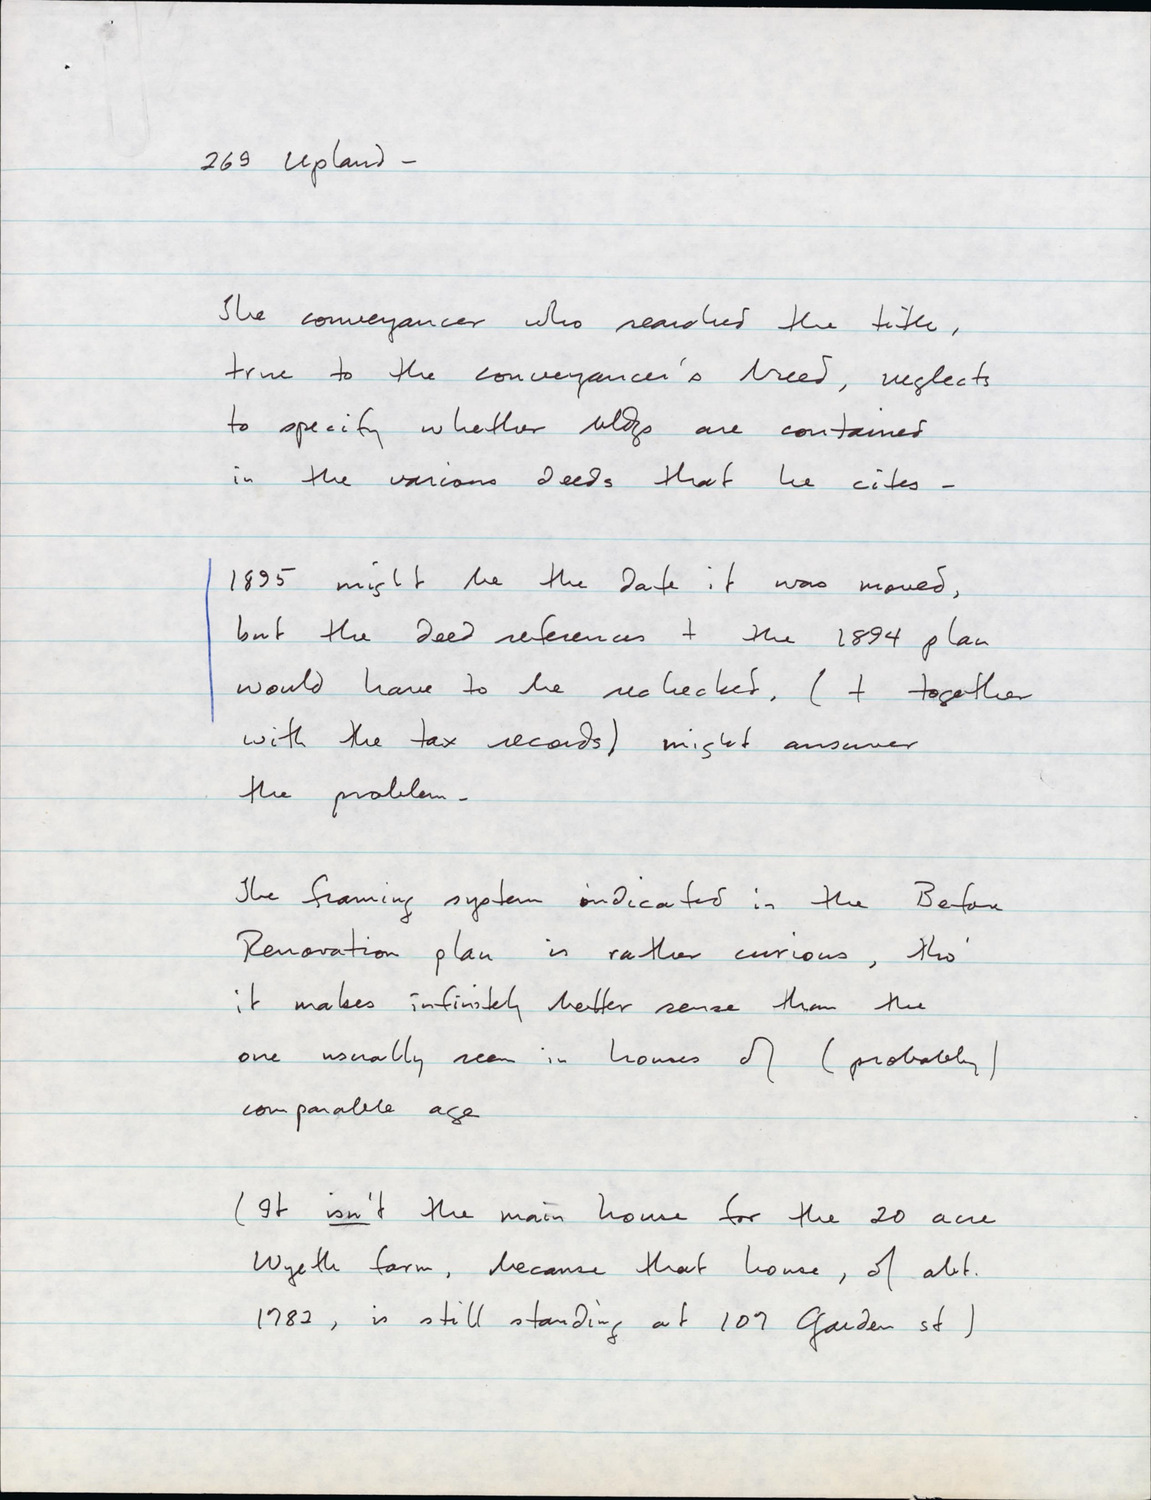 269 Upland -
The conveyancer who searched the title,
true to the conveyancer's breed, neglects
to specify whether bldgs are contained
in the various deeds that he cites -
1895 might be the date it was moved,
but the deed references + the 1894 plan
would have to be rechecked, ( + together
with the tax records) might answer
the problem -
The framing system indicated in the Before
Renovation plan is rather curious, tho'
it makes infinitely better sense than the
one usually seen in houses of (probably)
comparable age
(It isn't the main house for the 20 acre
Wyeth farm, because that house, of abt.
1782, is still standing at 107 Garden st)